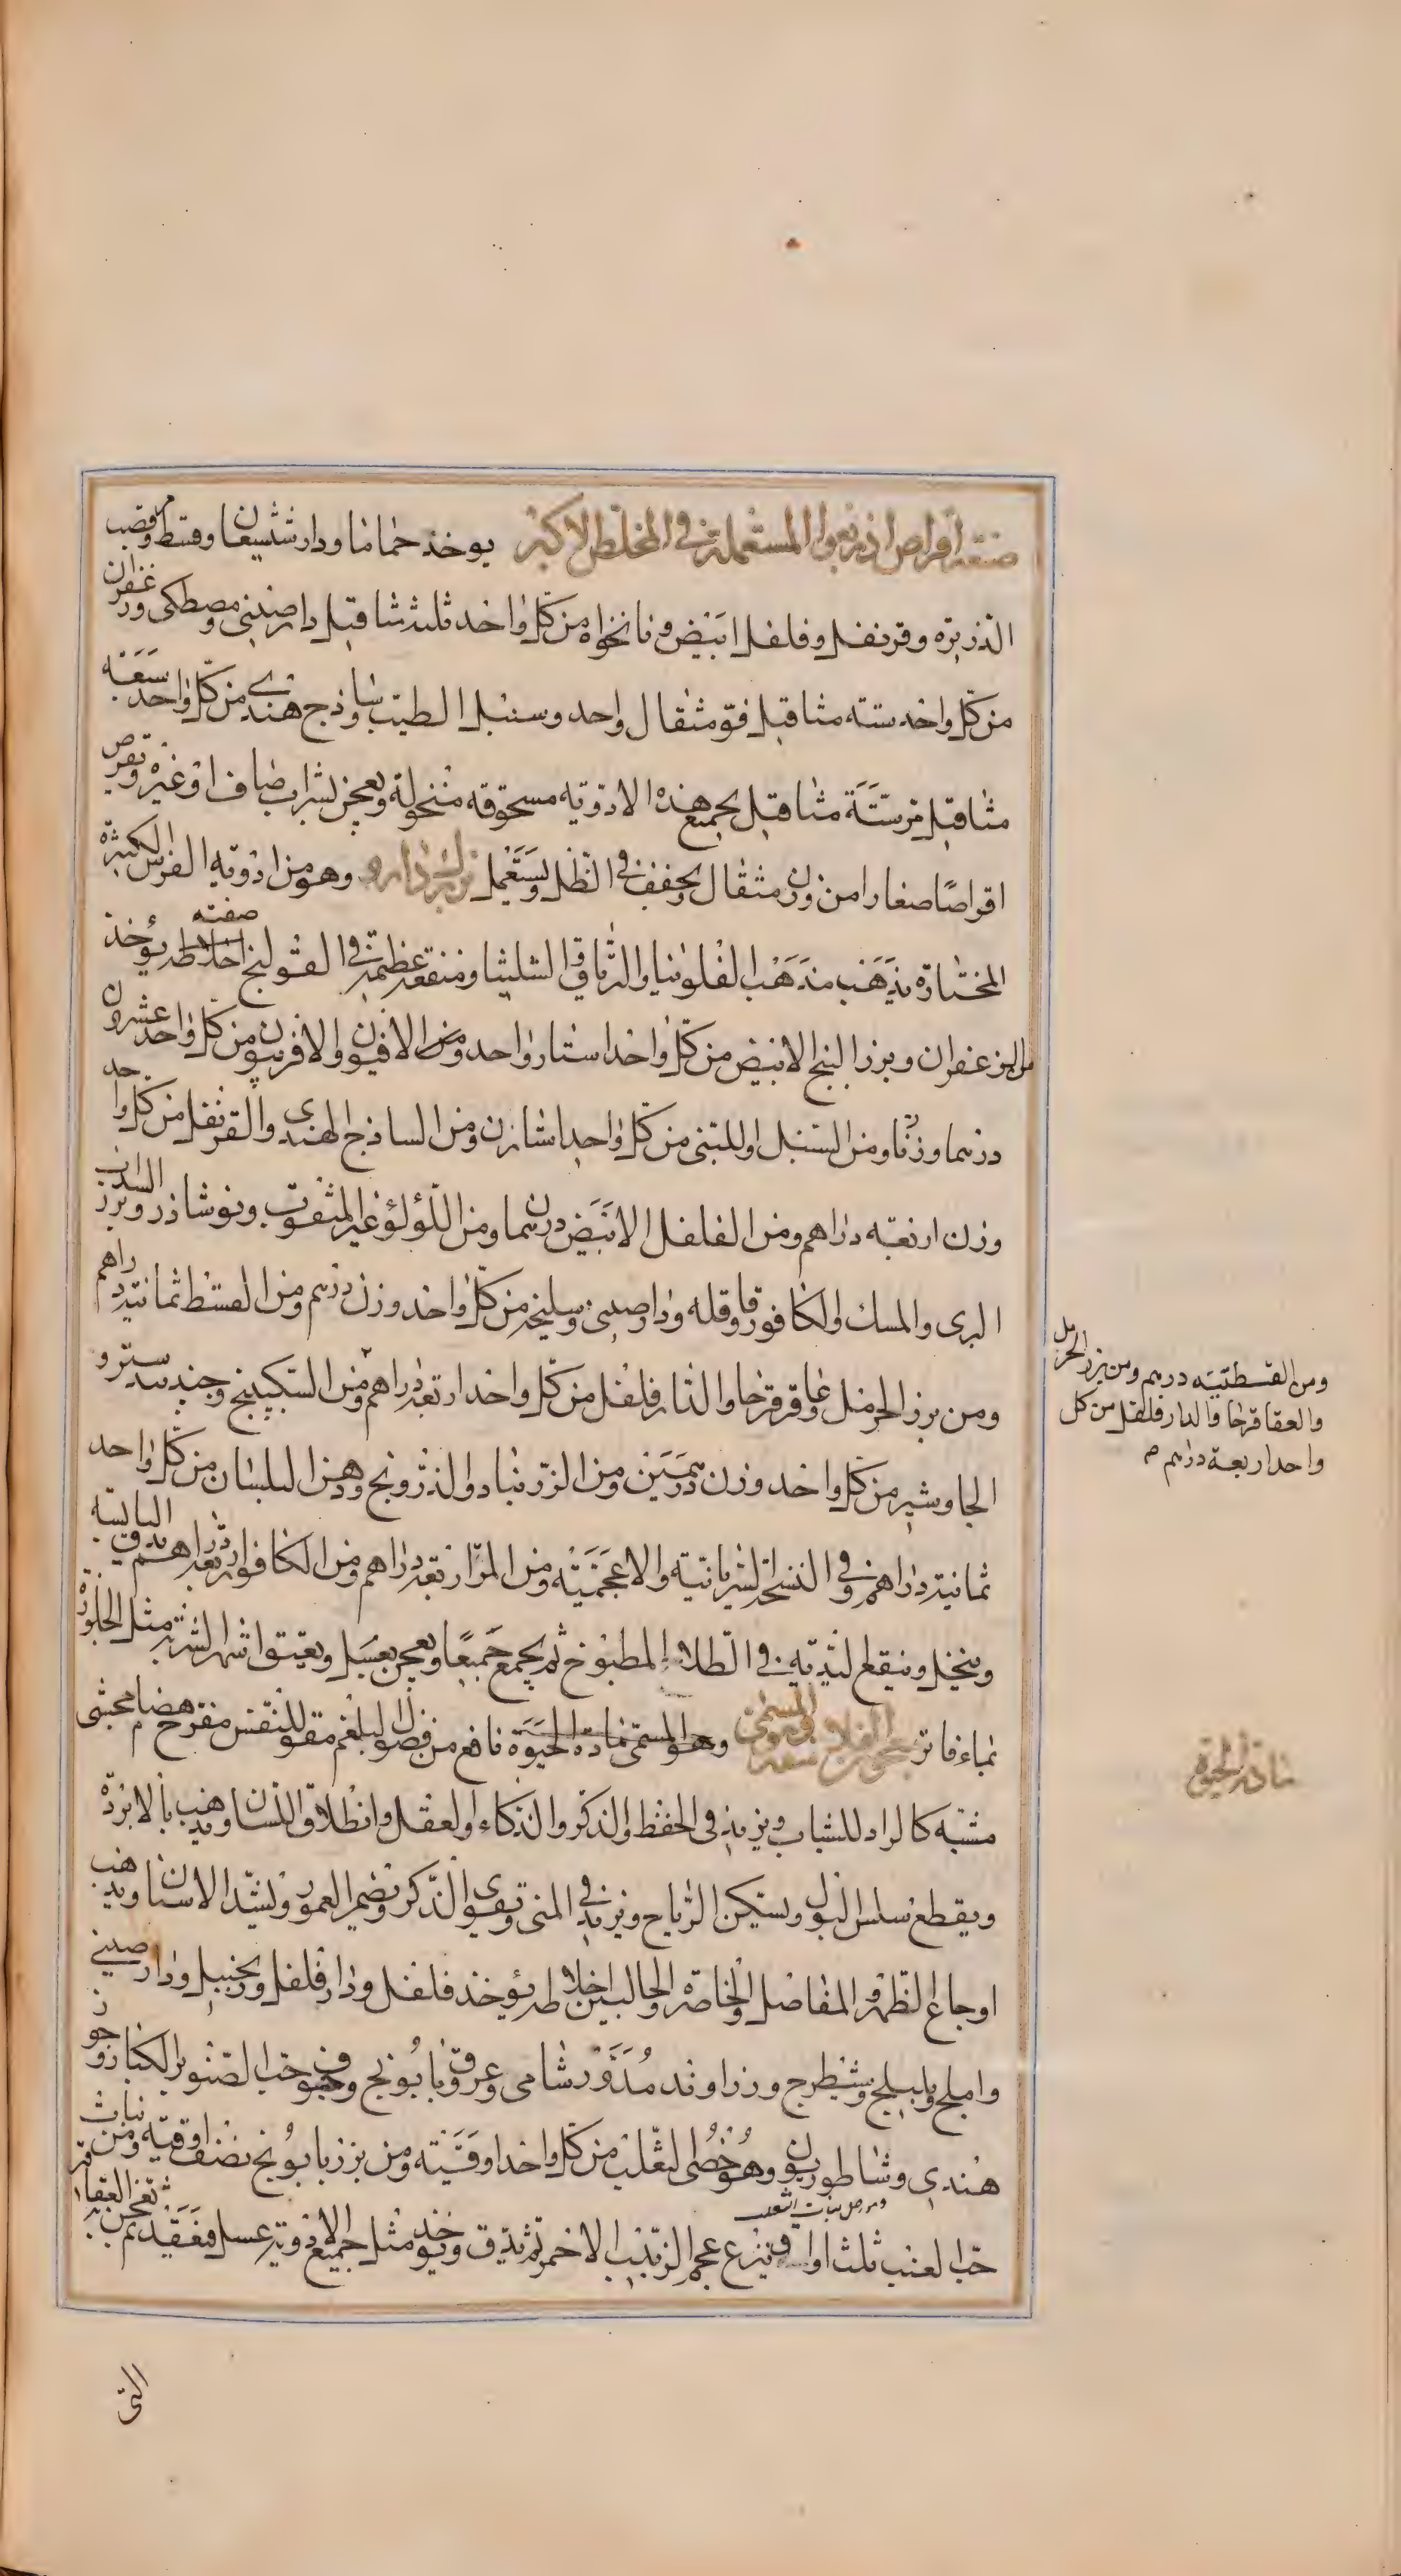 صنعة اقراص اندروخوا المستعملة في المخلص الاكبر يوخذ حماما ودارششيعان وقسط مر وقصب
الذريره وقرنفل وفلفل ابيض ونانخواه من كل واحد ثلثه مثاقيل دارصيني ومصطكى وزعفران
من كل واحد سته مثاقيل فو مثقال واحد وسنبل الطيب وساذج هندى من كل واحد سبعه
مثاقيل مر ستة مثاقيل يجمع هذه الادويه مسحوقه منخولة ويعجن بشراب صاف او غيره ويقرص
اقراصًا صغارا من وزن مثقال ويجفف في الظل ويستعمل بزرك دارو وهو من ادويه الفرس الكبيرة
المختارة يذهب مذهب الفلونيا والترياق والشليثا ومنفعته عظيمة في القولنج صفته اخلاطه يؤخذ
من الزعفران وبزر البنج الابيض من كل واحد استار واحد ومن الافيون والافربيون من كل واحد عشرون
درهما وزنًا ومن السنبل اوللبنى من كل واحد اشار زن ومن الساذج الهندى والقرنفل من كل واحد
وزن اربعه دراهم ومن الفلفل الابيض درهما ومن اللؤلؤ غير المثقوب ونوشاذر وبزر السداب
البرى والمسك والكافور وقاقله ودارصينى وسليخه من كل واحد وزن درهم ومن القسط ثمانية دراهم
ومن بزر الحرمل وعاقرقرحا والدارفلفل من كل واحد اربعة دراهم ومن السكبينج وجندبيدستر و
الجاوشير من كل واحد وزن درهمين ومن الزرنباد والذرونج ودهن البلسان من كل واحد
ثمانية دراهم وفي النسخة السريانية والاعجمية ومن المر اربعة دراهم ومن الكافور اربعة دراهم يدق اليابسه
وينخل وينقع لنديه في الطلاء المطبوخ ثم يجمع جميعًا ويعجن بعسل ويعتق اشهر الشربة مثل الجلوزة
بماء فاتر معجون الفلاسفة المسمى وهو المسمى مادة الحيوة نافع من فضول البلغم مقو للنفس مفرح هضام محشى
مشبه كالراد للشباب ويزيد فى الحفظ والذكر والذكاء والعقل وانطلاق اللسان ويذهب بالابردة
ويقطع سلس البول ويسكن الرياح ويزيد في المنى ويقوى الذكر ويضم العمور ويشد الاسنان ويذهب
اوجاع الظهر والمفاصل والخاصرة والحالبين اخلاطه يؤخذ فلفل ودارفلفل وزنجبيل ودارصيني
واملج وبليلج وشيطرج وزراوند مُدَوَّر شامى وعروق بابُونج وجوف حب الصنوبر الكبار وجوز
هندي وشاطوريون وهو خُصى الثعلب من كل واحد اوقيَّته ومن بزر بابونج نصف اوقيه ومن نبات
وهو اصل نبات الثعلب
حب العنب ثلث اواق وينزع عجم الزبيب الاحمر ثم يدق ويوخذ مثل جميع الادوية عسل فيعقد ثم يعجن به العقاقير
التى
ومن القسطتيته درهم ومن بزر الحرمل
والعقاقرحا والدارفلفل من كل
واحد اربعة دراهم
مادة الحيوة